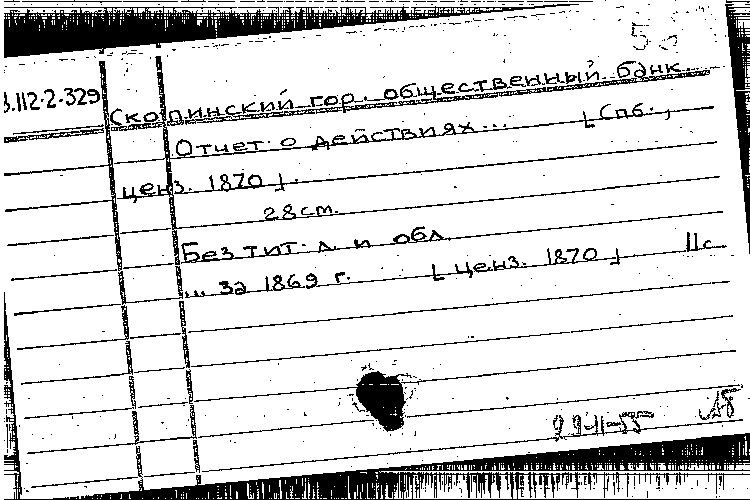 3.112-2-329
Скопинский гор. общественный банк.
Отчет о действиях... [Спб.,
ценз. 1870].
28 cm.
Без тит. л. и обл.
... за 1869 г. [ценз. 1870] 11 с